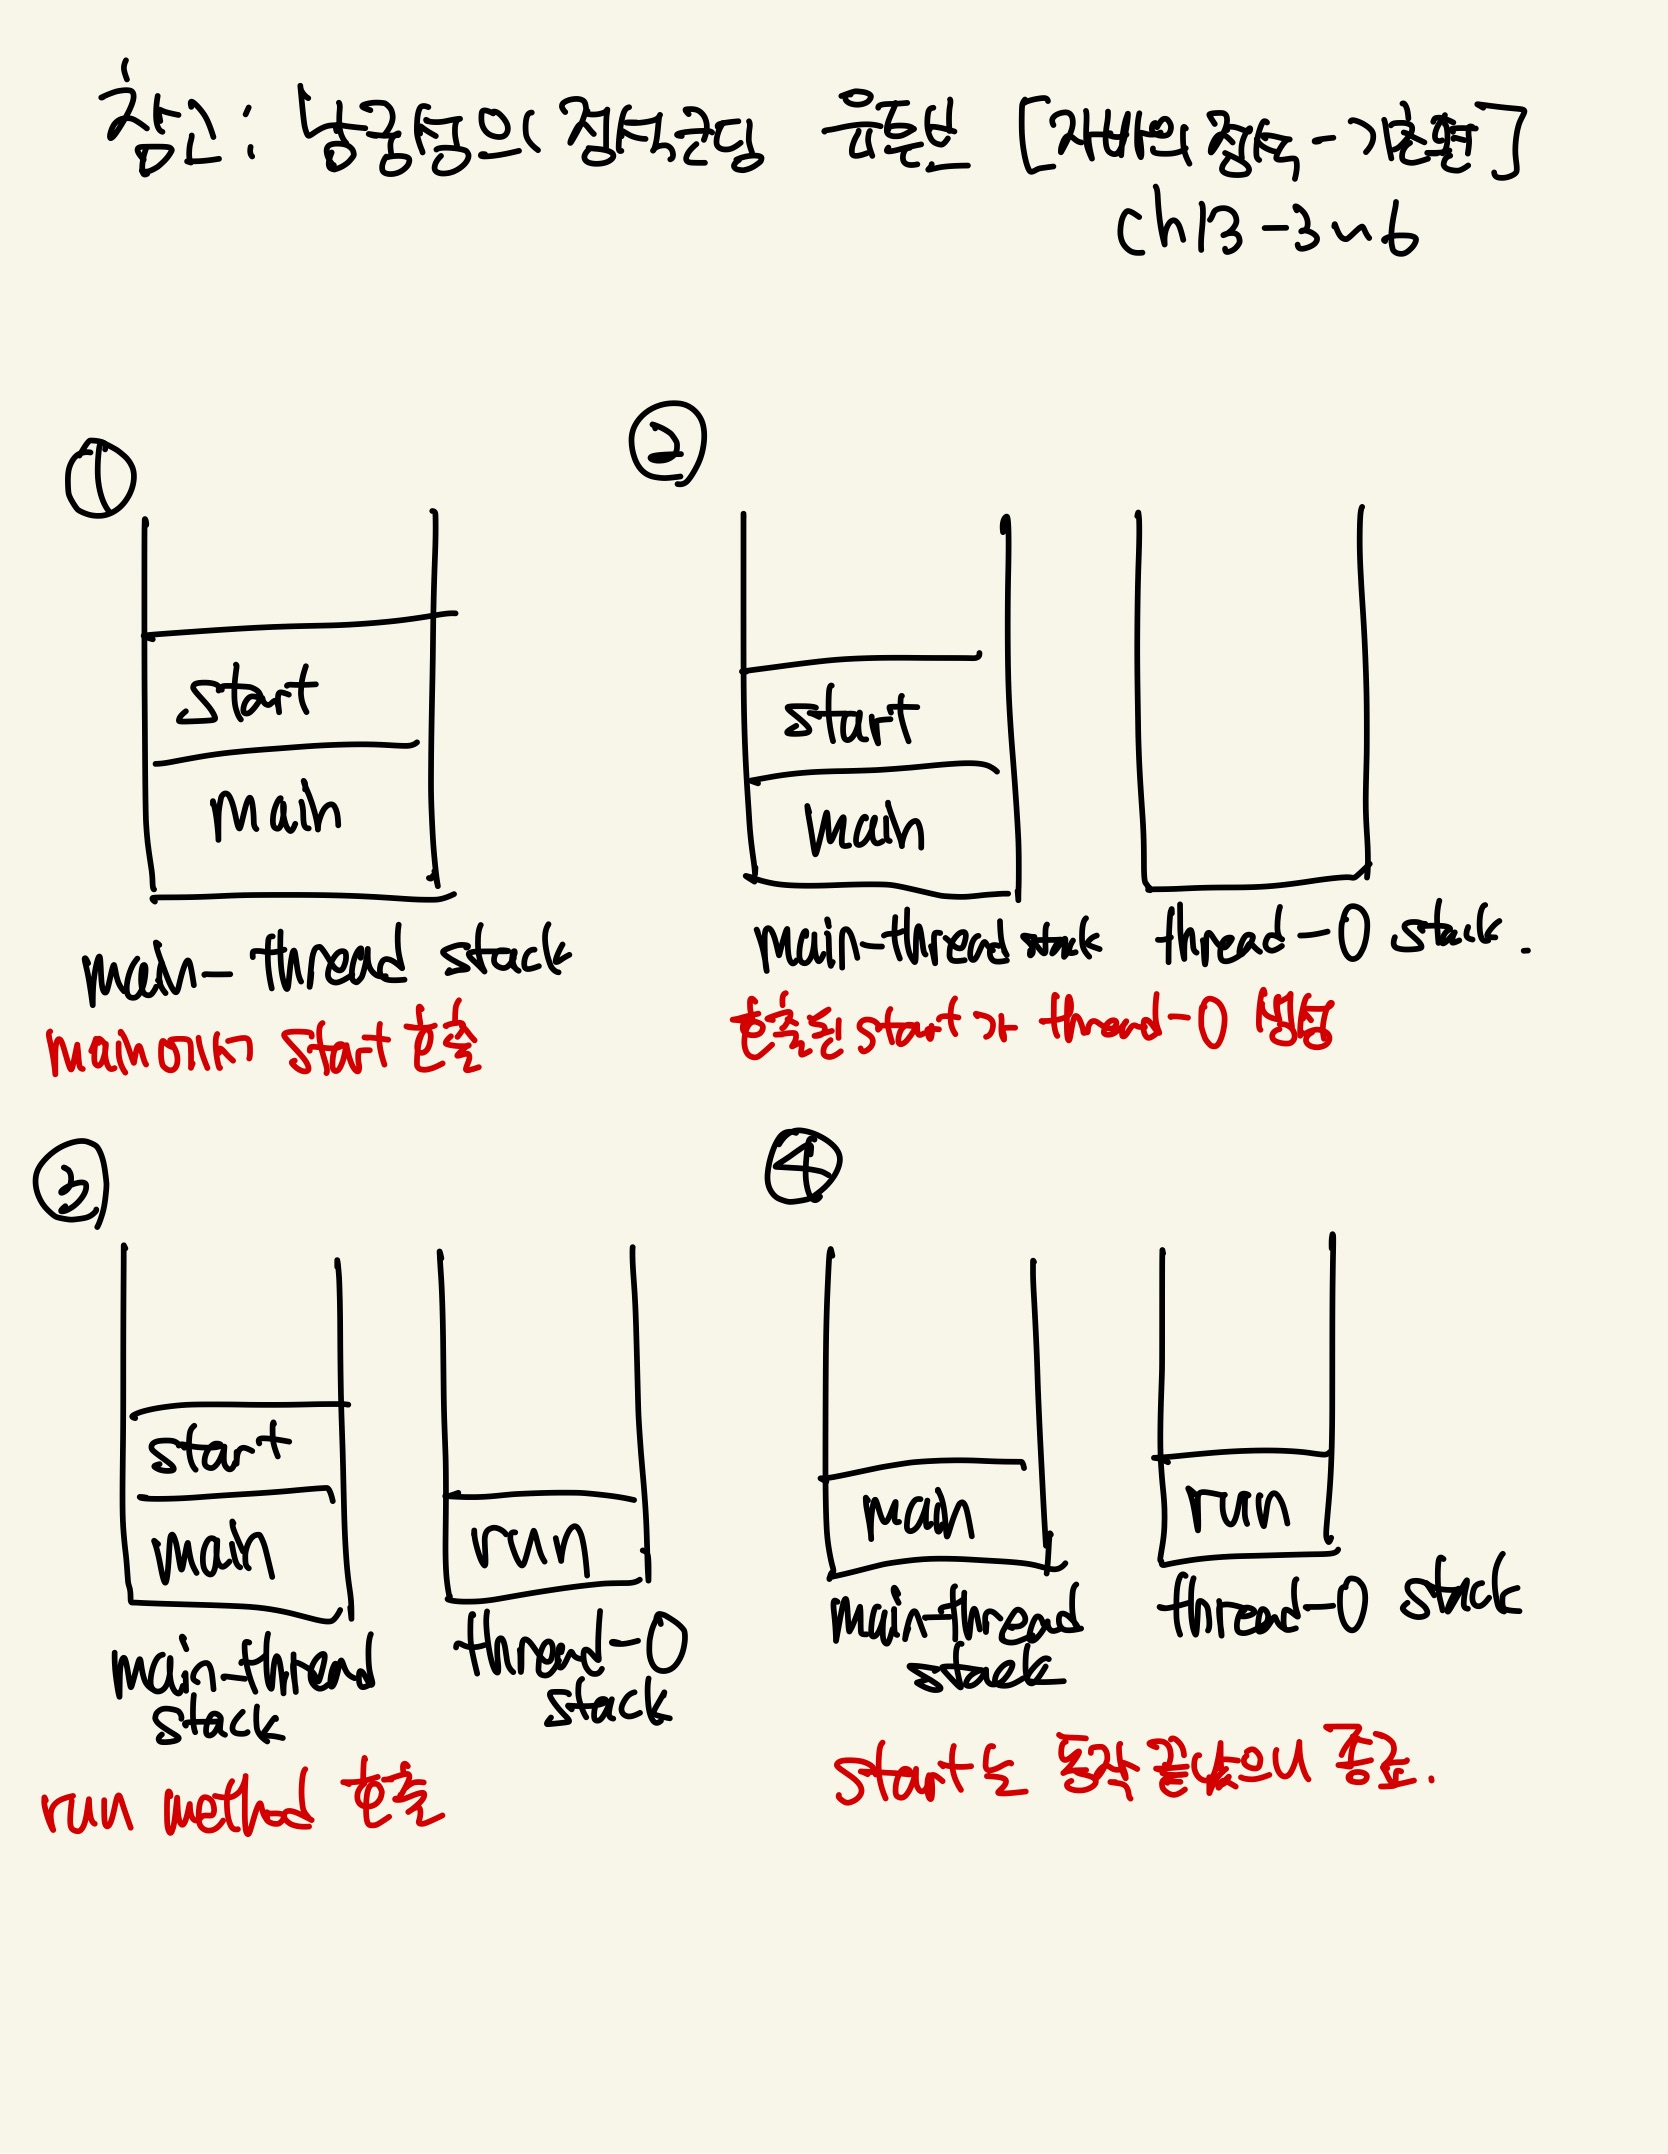 참고: 남궁성의 정석코딩 유튜브 [자바의 정석-기초편]
ch13-3~6
①
②
start
main
main-thread stack
main에서 start 호출
start
main
main-thread stack thread-0 stack.
호출된 start가 thread-0 생성
③
④
start
main
run
main-thread
stack
thread-0
stack
run method 호출
main
run
main-thread
stack
thread-0 stack
start는 동작 끝났으니 종료.